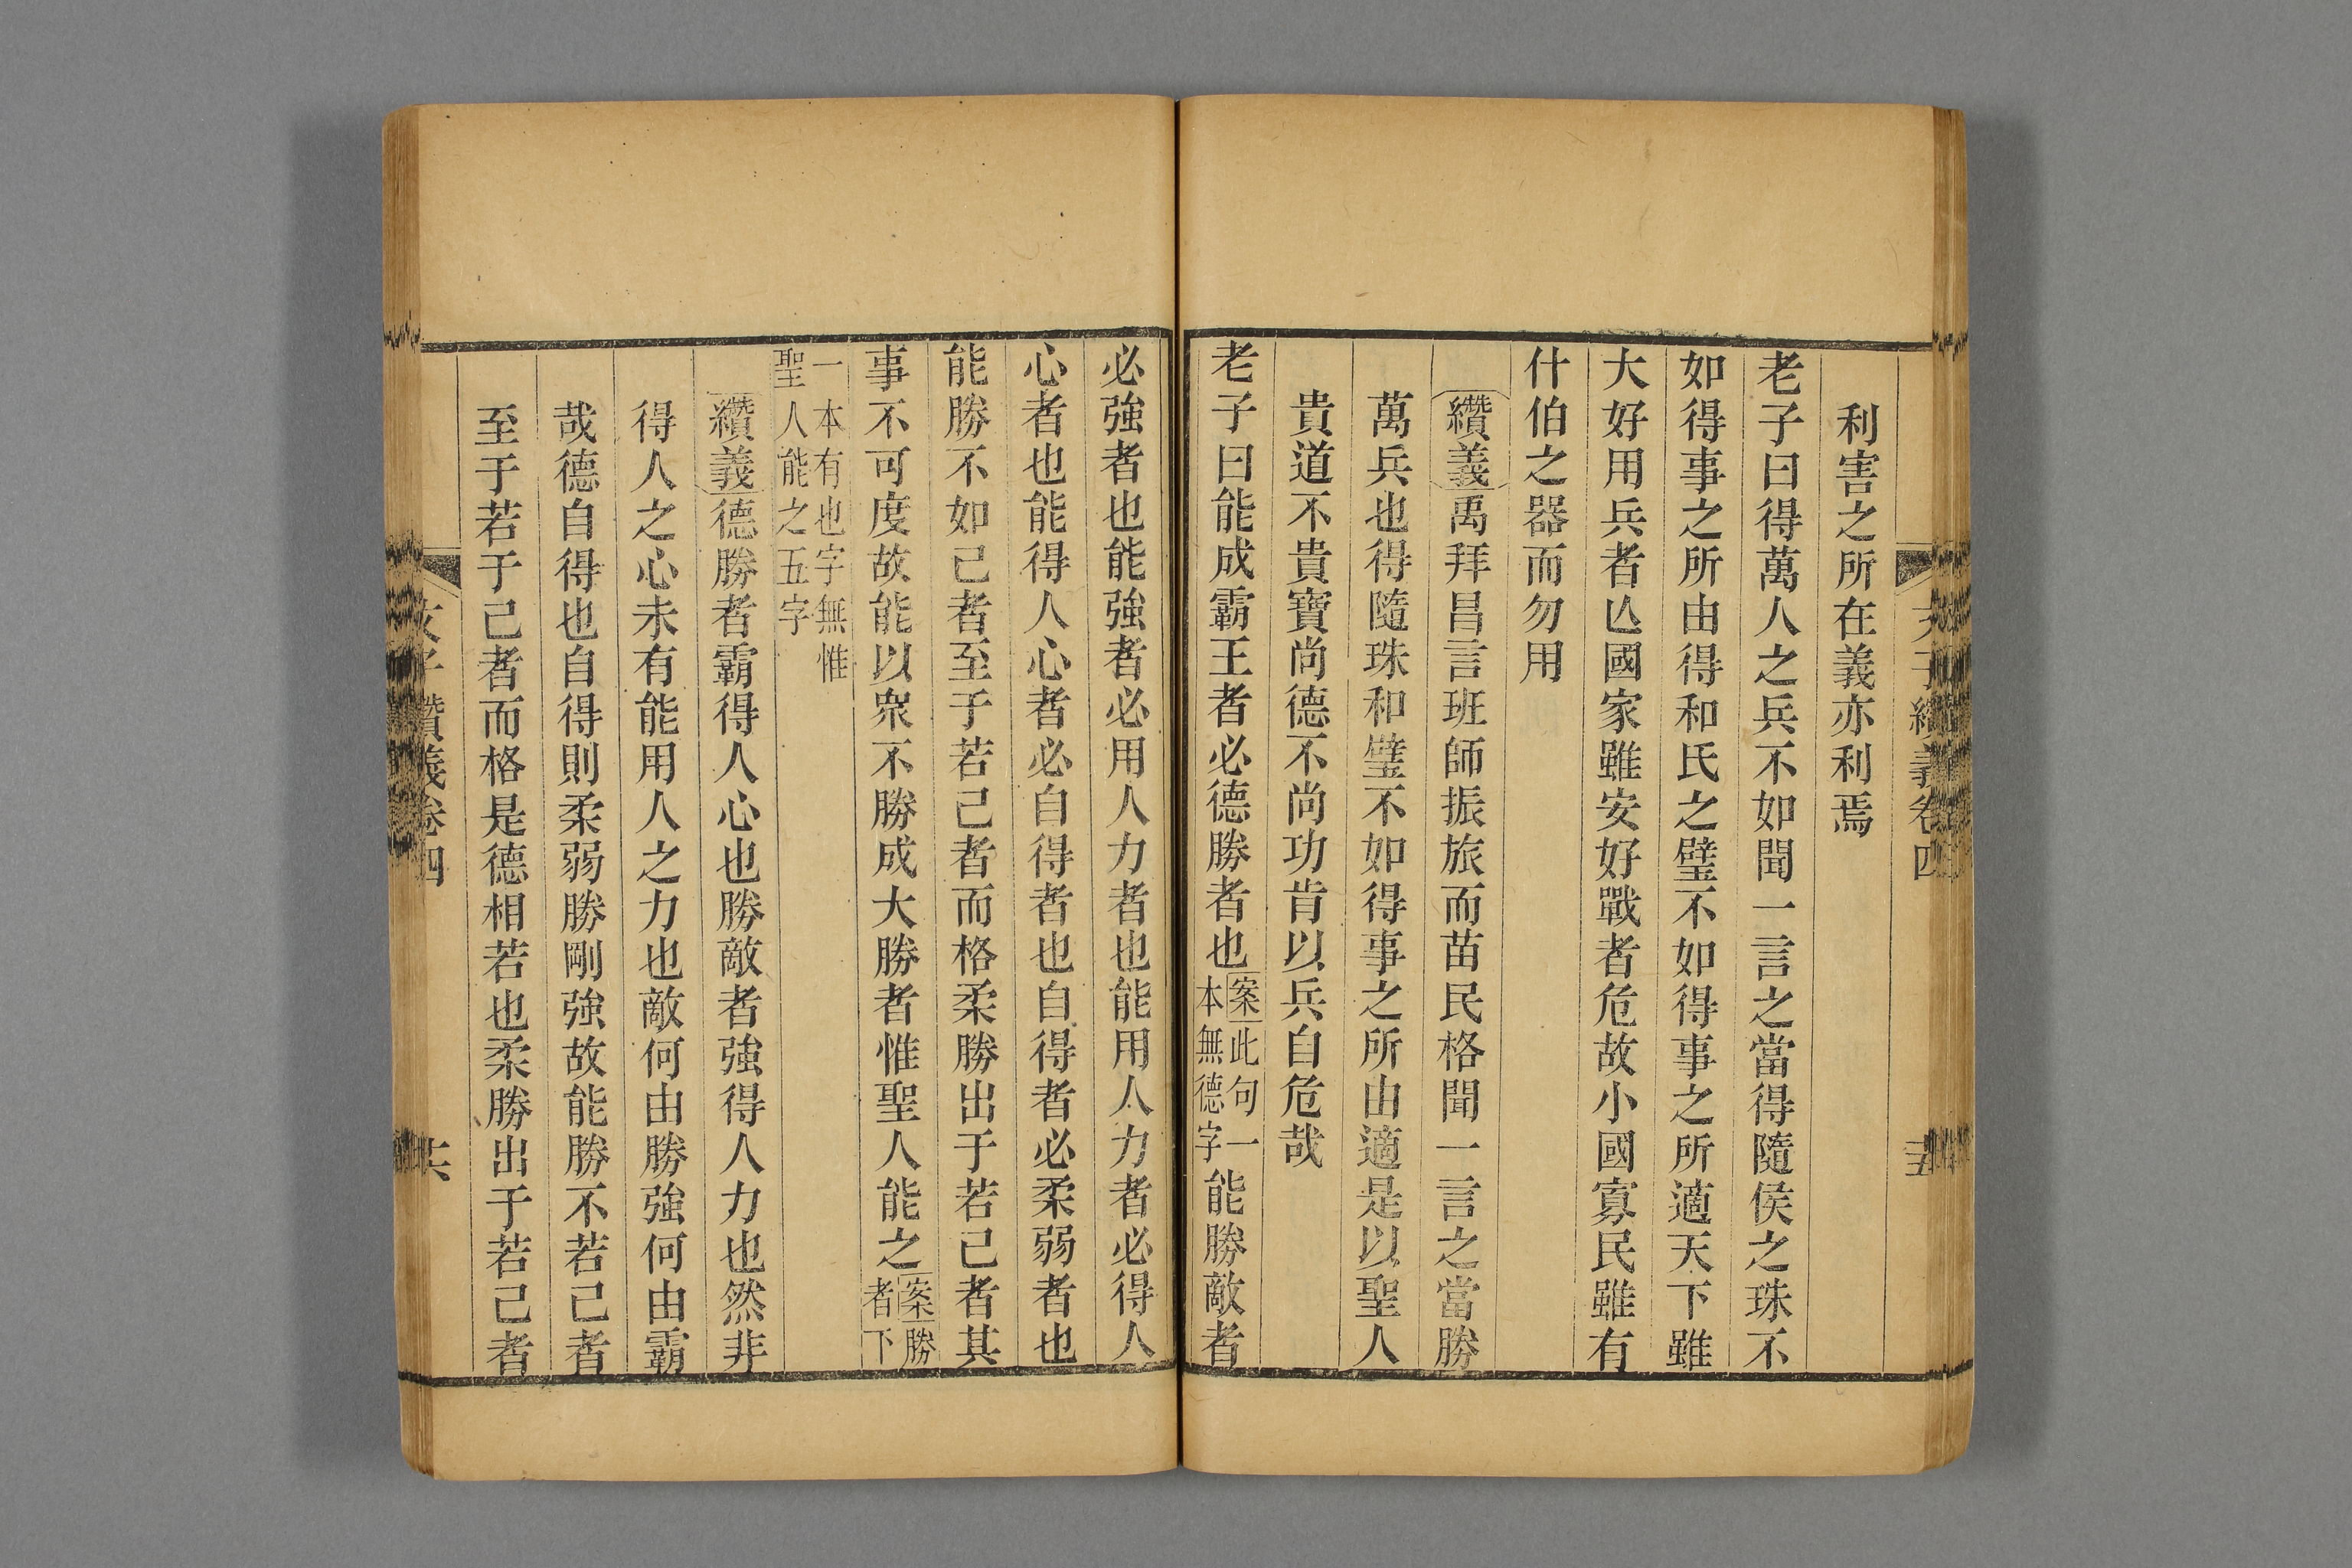 利害之所在義亦利焉
老子曰得萬人之兵不如聞一言之當得隨侯之珠不
如得事之所由得和氏之璧不如得事之所適天下雖
大好用兵者亾國家雖安好戰者危故小國寡民雖有
什伯之器而勿用
纘義禹拜昌言班師振旅而苗民格聞一言之當勝
萬兵也得隨珠和璧不如得事之所由適是以聖人
貴道不貴寶尚德不尚功肯以兵自危哉
老子曰能成霸王者必德勝者也案此句一本無德字能勝敵者
必強者也能強者必用人力者也能用人力者必得人
心者也能得人心者必自得者也自得者必柔弱者也
能勝不如己者至于若己者而格柔勝出于若己者其
事不可度故能以衆不勝成大勝者惟聖人能之案勝者下
一本有也字無惟聖人能之五字
纘義德勝者霸得人心也勝敵者強得人力也然非
得人之心未有能用人之力也敵何由勝強何由霸
哉德自得也自得則柔弱勝剛強故能勝不若己者
至于若于己者而格是德相若也柔勝出于若己者
纘義卷四